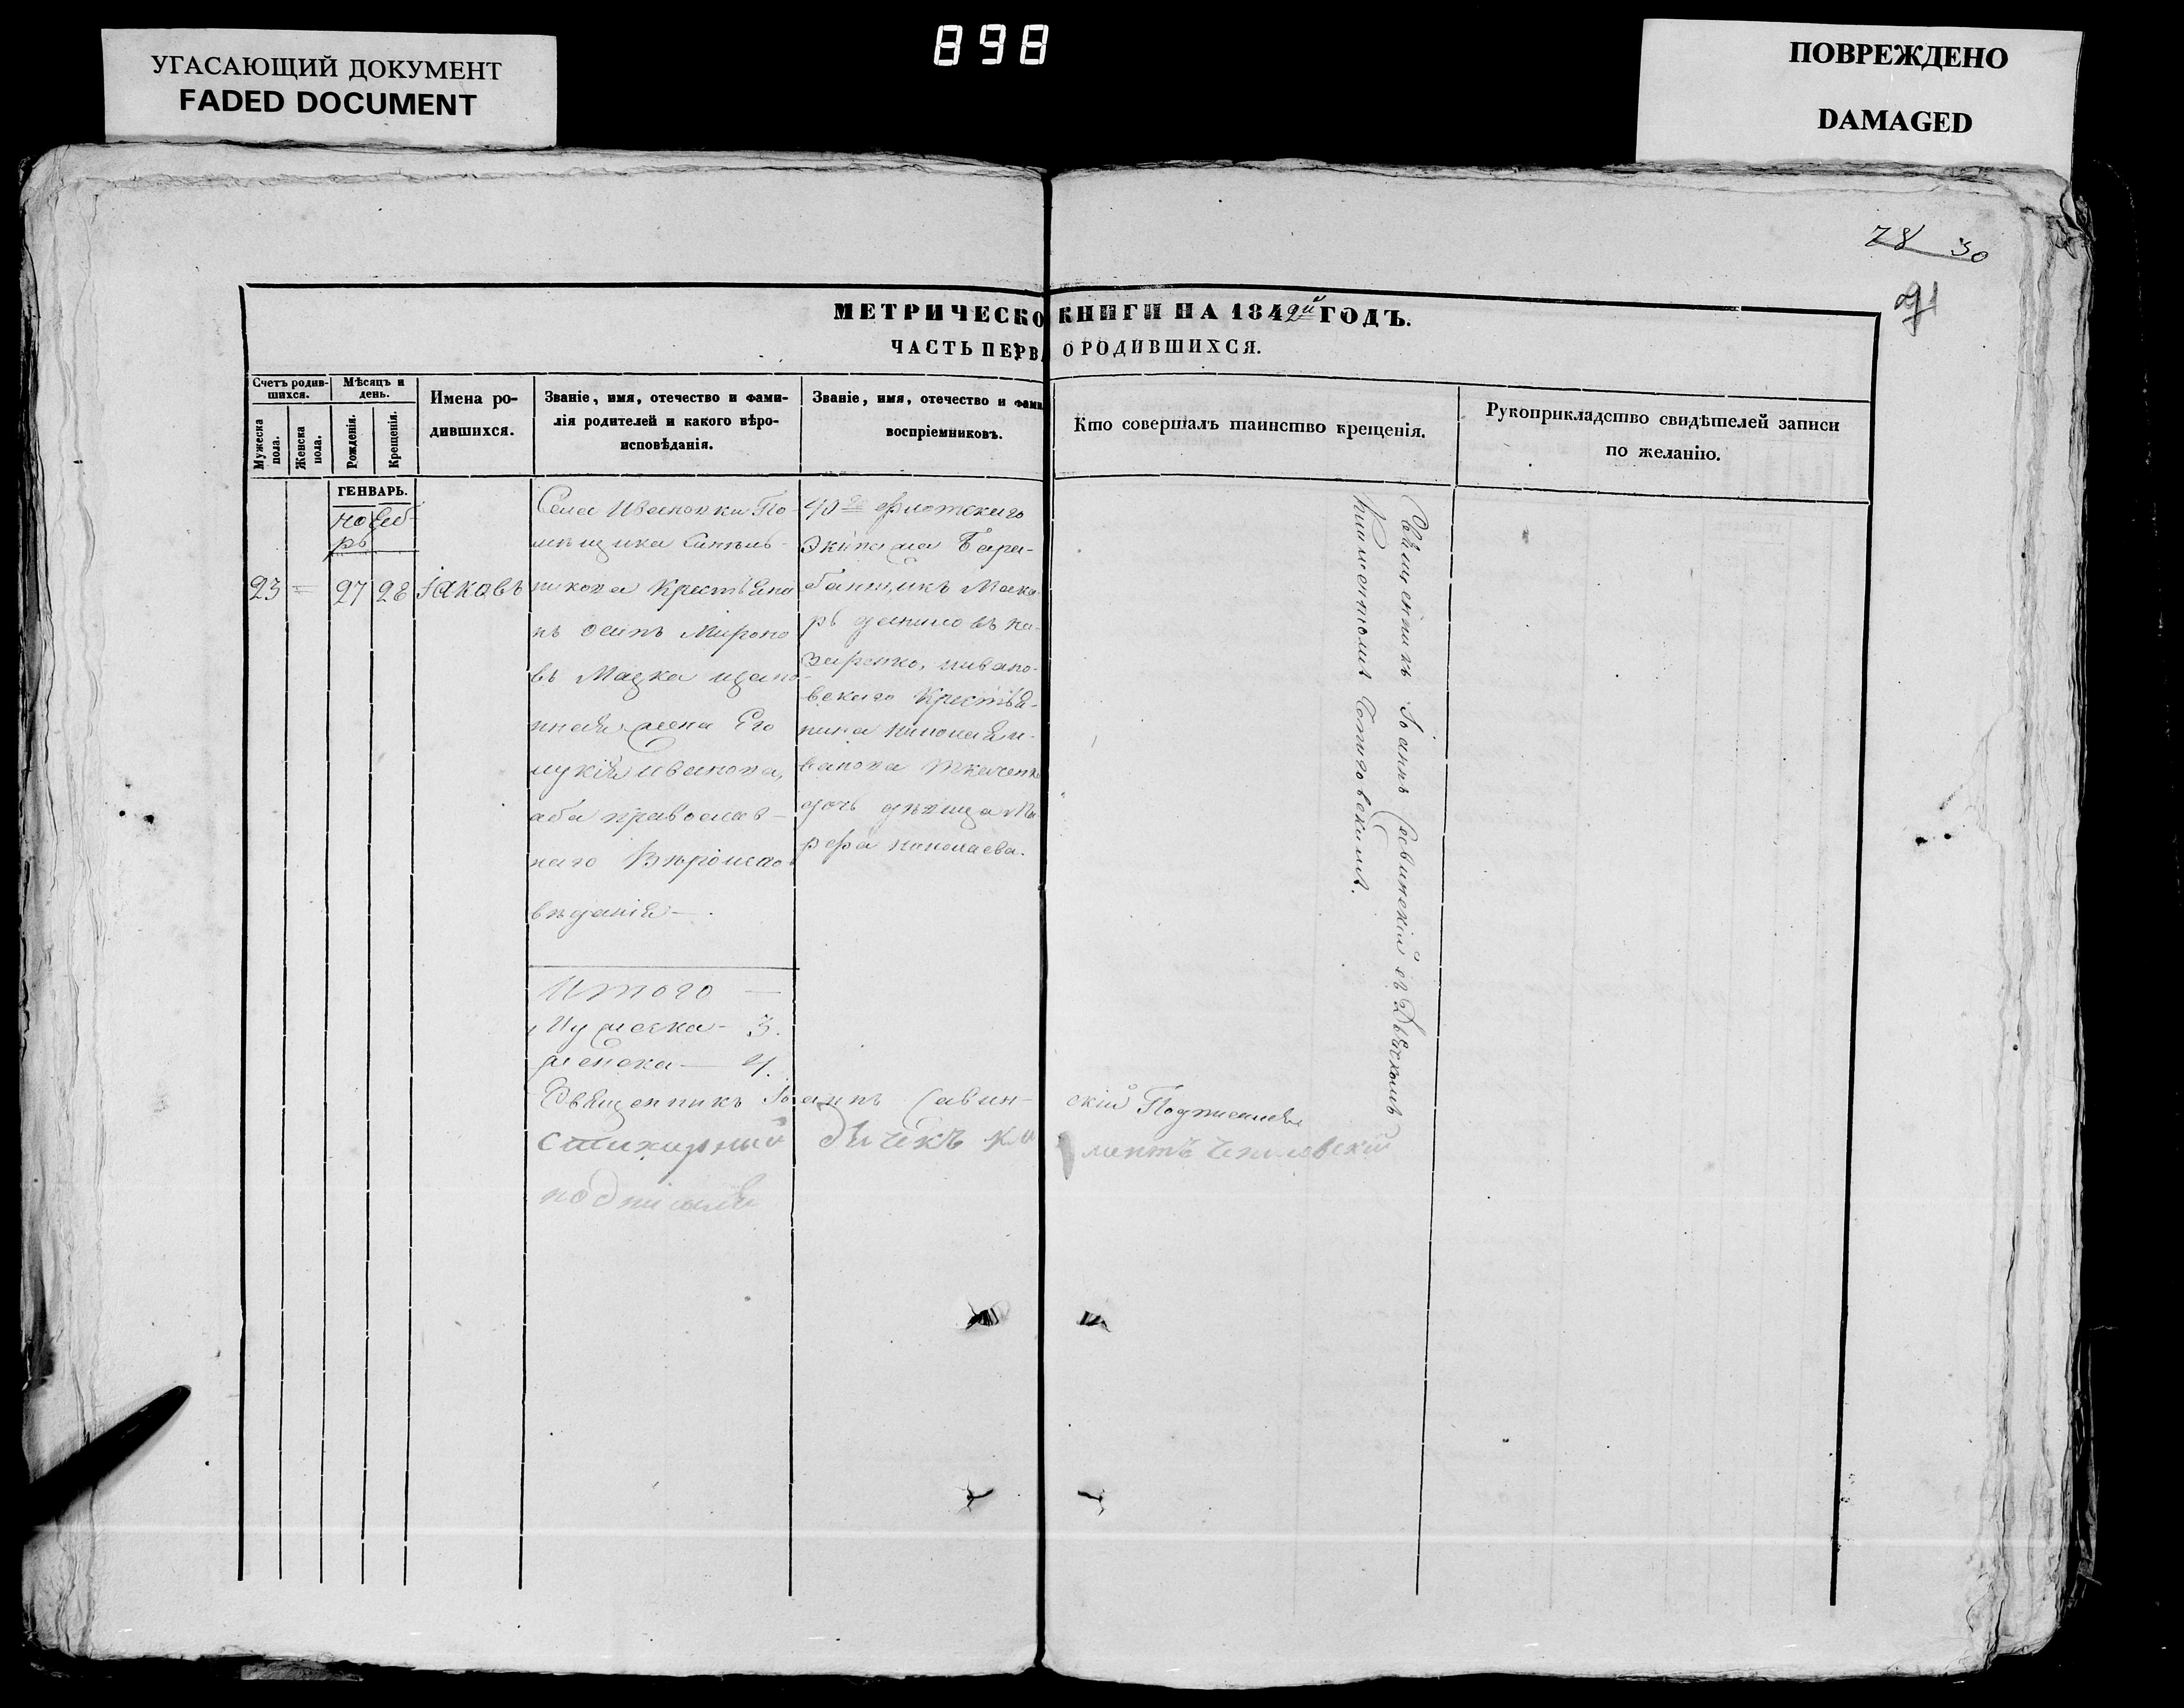 898
УГАСАЮЩИЙ ДОКУМЕНТ
FADED DOCUMENT
ПОВРЕЖДЕНО
DAMAGED
78 30
МЕТРИЧЕСКО КНИГИ НА 1842й ГОДЪ.
ЧАСТЬ ПЕРВА О РОДИВШИХСЯ.
Счетъ родив-
шихся.
Мужеска
пола.
Женска
пола.
Мѣсяцъ и
день.
Рожденія.
Крещенія.
Имена ро-
дившихся.
Званіе, имя, отечество и фами-
лія родителей и какого вѣро-
исповѣданія.
Званіе, имя, отечество и фами
воспріемниковъ.
Кто совершалъ таинство крещенія.
Рукоприкладство свидѣтелей записи
по желанію.
ГЕНВАРЬ.
23 = 27 28 Іаковъ
Села Ивановки По-
мѣщика
кова Крестьяни
нъ Осипъ Мироно
въ
жена Его
Иванова,
оба православ-
наго Вѣроиспо
вѣданія.
40го флотского
Экипажа Бара-
банщикъ Мака
ръ Даниловъ На-
заренко, Ивано-
вскаго Крестья-
нина Николая И-
ванова Ткаченка
дочь дѣвица Ма
рфа Николаева.
Священникъ Іоаннъ Савинскій съ Дьячкомъ
Климентомъ
Итого —
Мужеска — 3.
женска — 4.
Священникъ Іоаннъ Савин- скій
Стихарный дьячекъ Кли ментъ
подписался